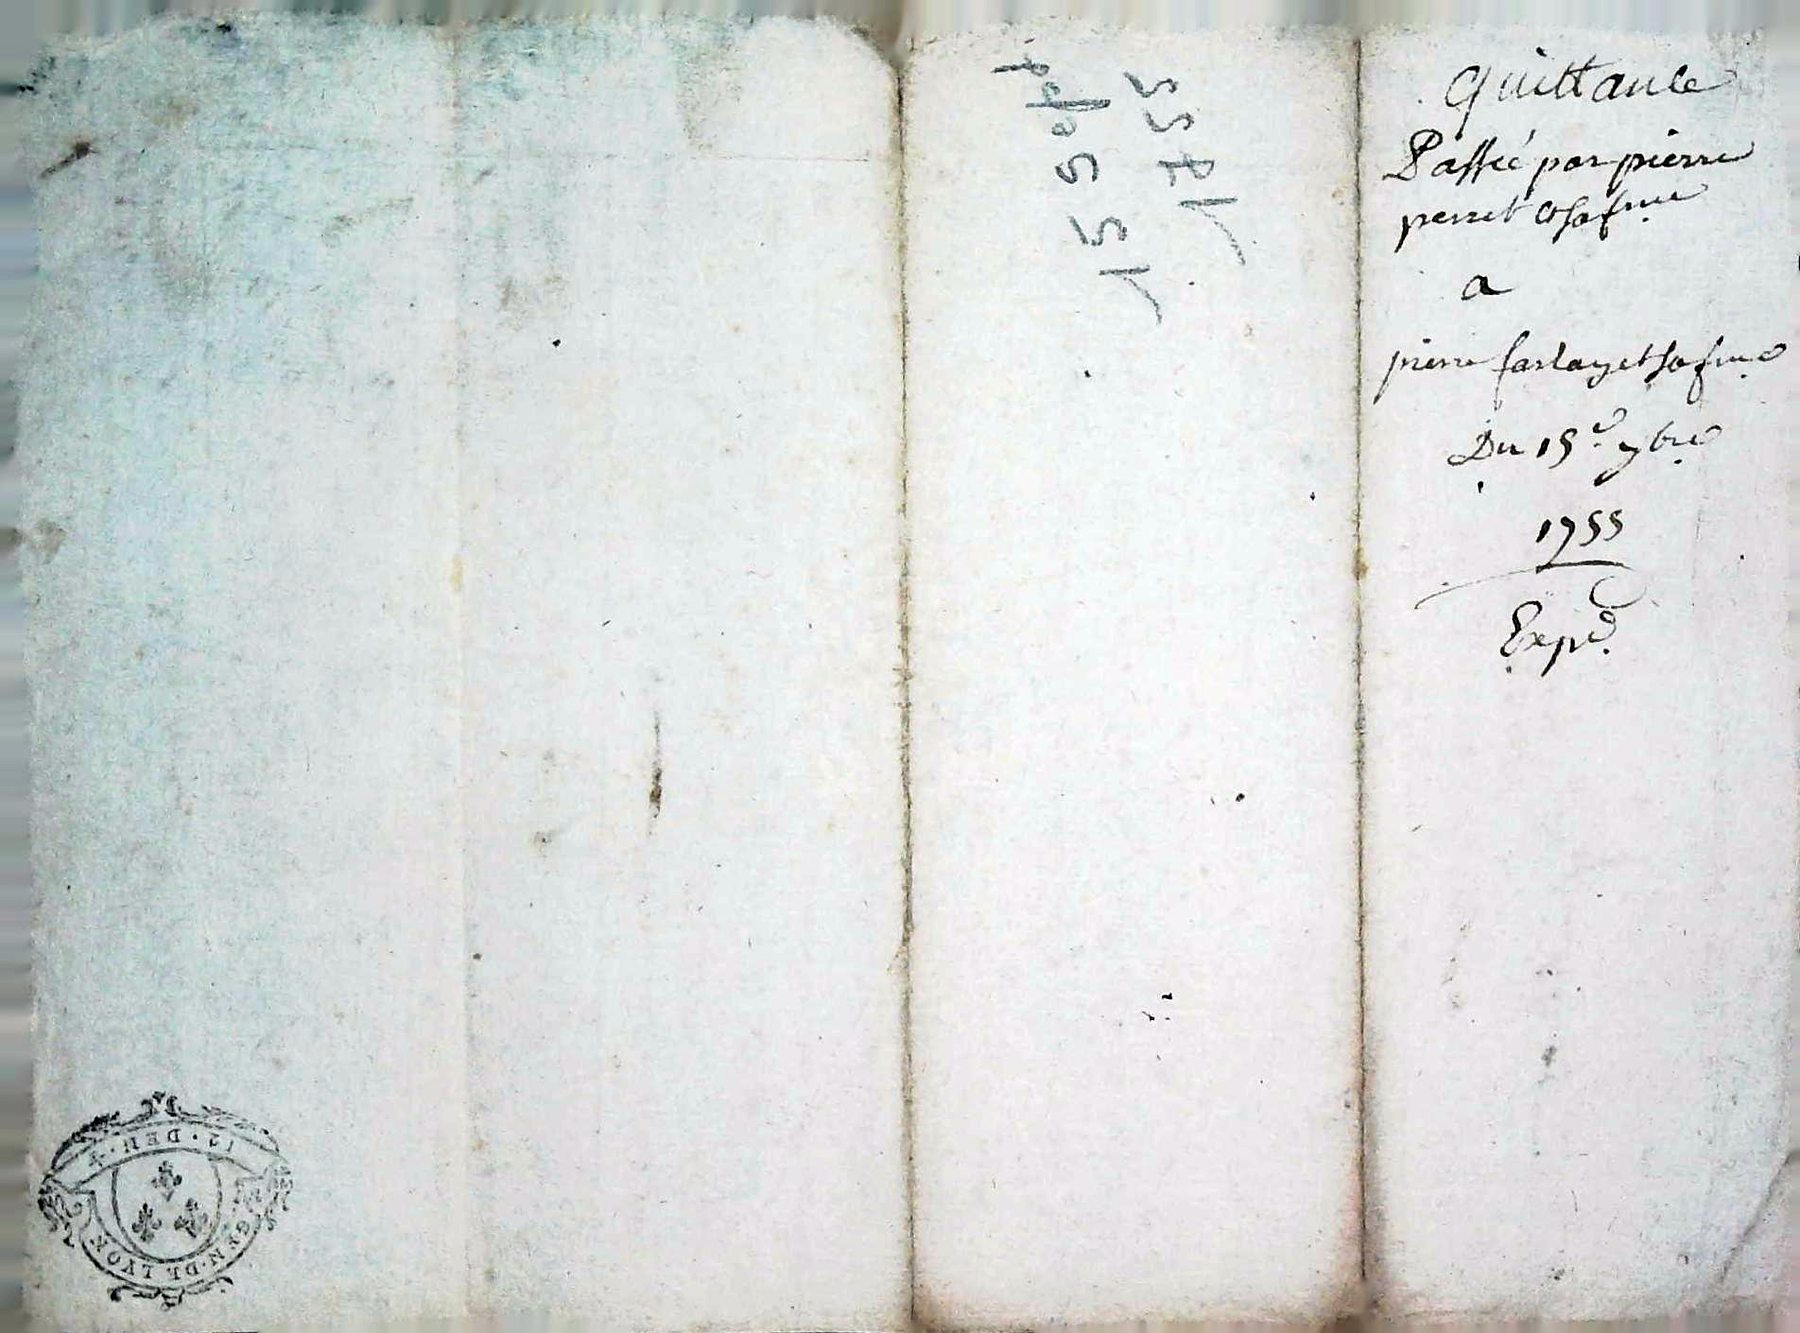 Quittance
Passée par pierre
perret et sa fme
a
pierre farlay et sa fme
Du 15e 7bre
1755
Expd.
15 Sept
1755
12 · DEN · 4
GEN · DE LYON